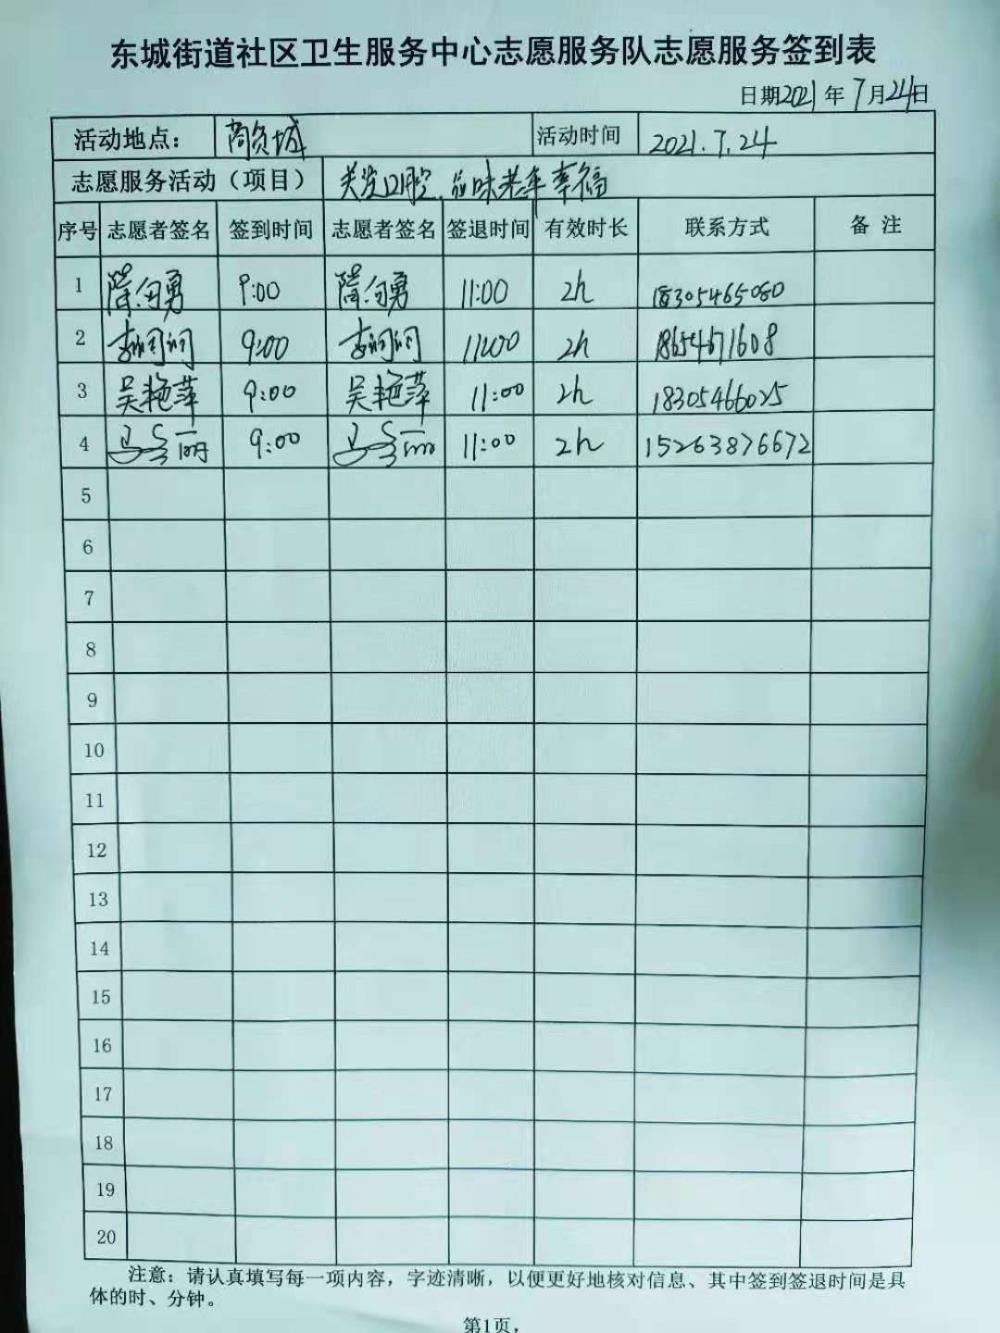 东城街道社区卫生服务中心志愿服务队志愿服务签到表
日期2021年7月24日
活动地点： 商贸城 活动时间 2021.7.24
志愿服务活动（项目） 关爱口腔,品味老年幸福
序号 志愿者签名 签到时间 志愿者签名 签退时间 有效时长 联系方式 备 注
1 隋向勇 9:00 隋向勇 11:00 2h 18305465080
2 李闰闰 9:00 李闰闰 11:00 2h 18654671608
3 吴艳萍 9:00 吴艳萍 11:00 2h 18305466025
4 丽 9:00 丽 11:00 2h 15263876672
5
6
7
8
9
10
11
12
13
14
15
16
17
18
19
20
注意：请认真填写每一项内容，字迹清晰，以便更好地核对信息、其中签到签退时间是具
体的时、分钟。
第1页，